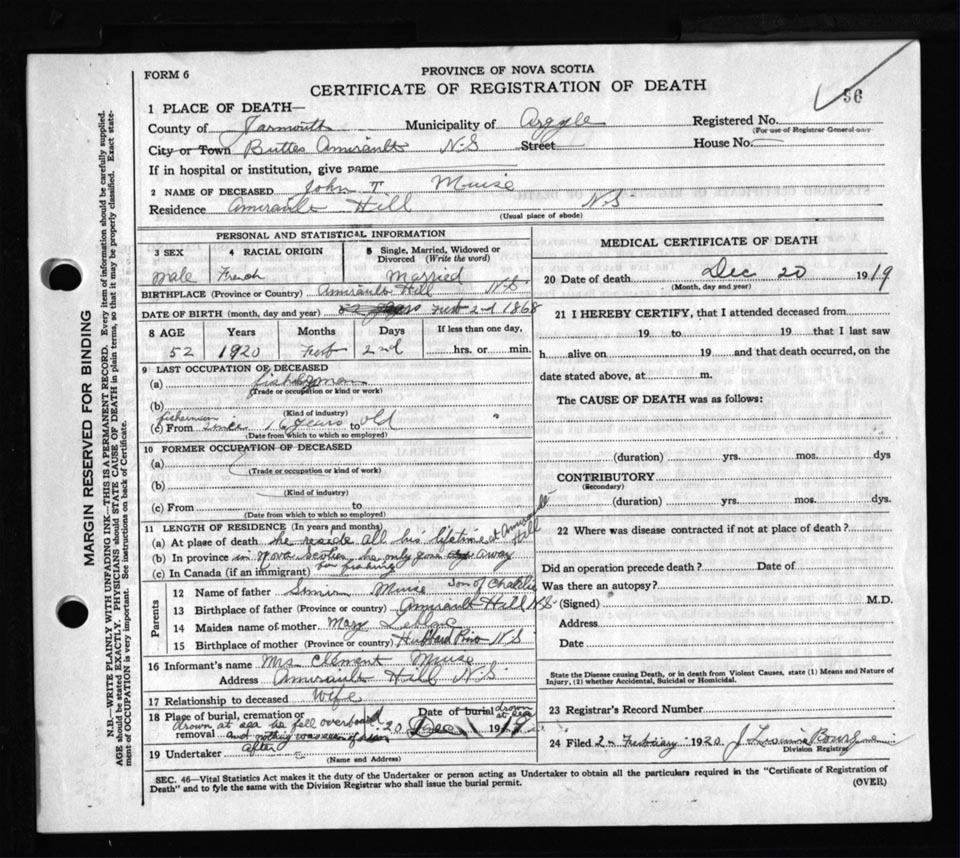 FORM 6
PROVINCE OF NOVA SCOTIA
CERTIFICATE OF REGISTRATION OF DEATH
36
1 PLACE OF DEATH—
County of Yarmouth Municipality of Argyle Registered No.
(For use of Registrar General only)
City or Town Buttes Amirault N.S Street House No.
If in hospital or institution, give name
2 NAME OF DECEASED John T Muise
Residence Amirault Hill N.S
(Usual place of abode)
PERSONAL AND STATISTICAL INFORMATION
3 SEX 4 RACIAL ORIGIN 5 Single, Married, Widowed or Divorced (Write the word)
Male French Married
BIRTHPLACE (Province or Country) Amirault Hill N.S.
DATE OF BIRTH (month, day and year) Feb 2nd 1868
8 AGE Years Months Days If less than one day
52 1920 Feb 2nd hrs. or min.
9 LAST OCCUPATION OF DECEASED
(a) fisherman
(Trade or occupation or kind or work)
(b)
(Kind of industry)
fisherman
(c) From since 16 years to old "
(Date from which to which so employed)
10 FORMER OCCUPATION OF DECEASED
(a)
(Trade or occupation or kind of work)
(b)
(Kind of industry)
(c) From to
(Date from which to which so employed)
11 LENGTH OF RESIDENCE (In years and months)
(a) At place of death he reside all his lifetime at Amirault Hill
(b) In province in Nova Scotia, he only gone away
(c) In Canada (if an immigrant) for fishing
Parents
12 Name of father Simion Muise son of Charlie
13 Birthplace of father (Province or country) Amirault Hill N.S.
14 Maiden name of mother Mary Leblanc
15 Birthplace of mother (Province or Country) Hubbard N.S
16 Informant's name Mrs Clement Muise
Address Amirault Hill N.S
17 Relationship to deceased Wife
18 Place of burial, cremation or removal drown at sea he fell overboard and nothing was seen of him after
Date of burial drown at sea 20 Dec 1919
19 Undertaker
(Name and Address)
MEDICAL CERTIFICATE OF DEATH
20 Date of death Dec 20 1919
(Month, day and year)
21 I HEREBY CERTIFY, that I attended deceased from
19 to 19 that I last saw
h alive on 19 and that death occurred, on the
date stated above, at m.
The CAUSE OF DEATH was as follows:
(duration) yrs. mos. dys
CONTRIBUTORY
(Secondary)
(duration) yrs. mos. dys.
22 Where was disease contracted if not at place of death?
Did an operation precede death? Date of
Was there an autopsy?
(Signed) M.D.
Address
Date
State the Disease causing Death, or in death from Violent Causes, state (1) Means and Nature of
Injury, (2) whether Accidental, Suicidal or Homicidal.
23 Registrar's Record Number
24 Filed 2 February 1920 J Bourg
Division Registrar
SEC. 46—Vital Statistics Act makes it the duty of the Undertaker or person acting as Undertaker to obtain all the particulars required in the "Certificate of Registration of
Death" and to fyle the same with the Division Registrar who shall issue the burial permit.
(OVER)
MARGIN RESERVED FOR BINDING
N.B.—WRITE PLAINLY WITH UNFADING INK—THIS IS A PERMANENT RECORD. Every item of information should be carefully supplied.
AGE should be stated EXACTLY. PHYSICIANS should STATE CAUSE OF DEATH in plain terms, so that it may be properly classified. Exact state-
ment of OCCUPATION is very important. See instructions on back of Certificate.